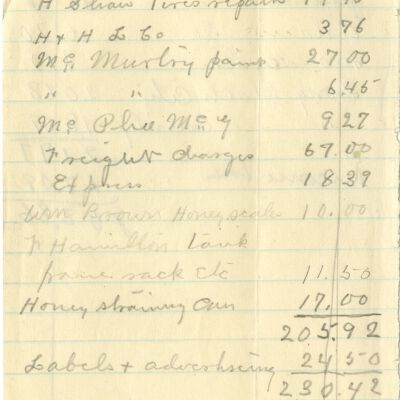 H Shaw Tires repairs
H + H L Co 3 76
Mc Murtry paint 27 00
" " 6.45
Mc Phee Mc y 9 27
Freight charges 67.00
Express 18 39
Wm Brown Honey scales 10.00
F Hamilton tank
frame rack etc 11.50
Honey straining can 17.00
205.92
Labels + advertising 24 50
230.42